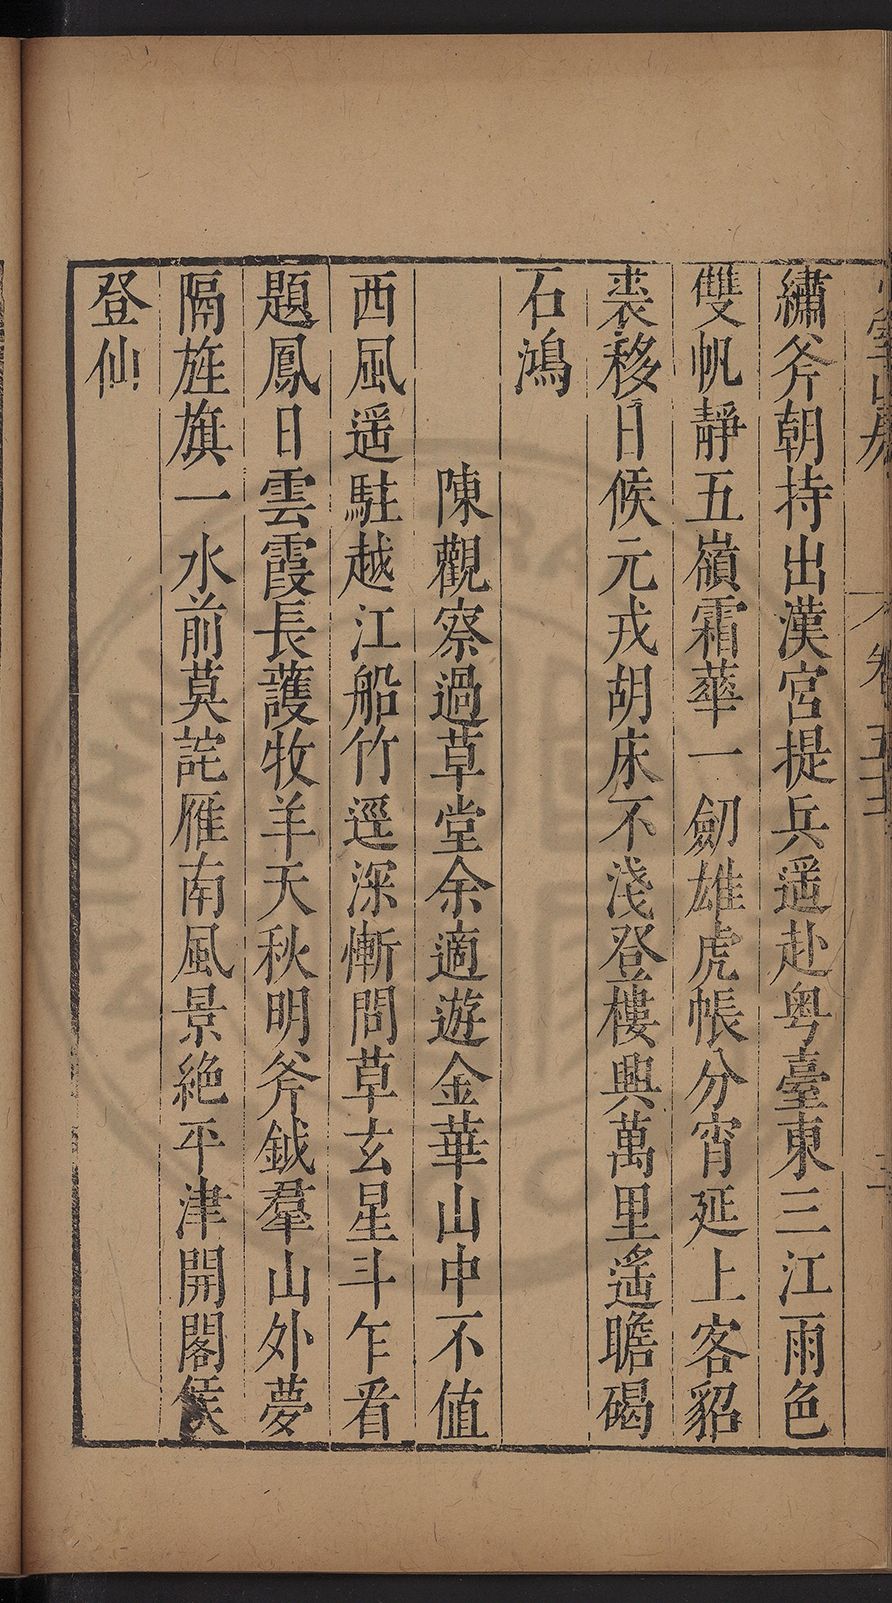 繡斧朝持出漢宮提兵遥赴粤臺東三江雨色
雙帆靜五嶺霜華一劒雄虎帳分宵延上客貂
裘移日候元戎胡床不淺登樓興萬里遙瞻碣
石鴻
陳觀察過草堂余適遊金華山中不值
西風遥駐越江船竹逕深慚問草玄星斗乍看
題鳳日雲霞長護牧羊天秋明斧鉞羣山外夢
隔旌旗一水前莫詫雁南風景絶平津開閣候
登仙